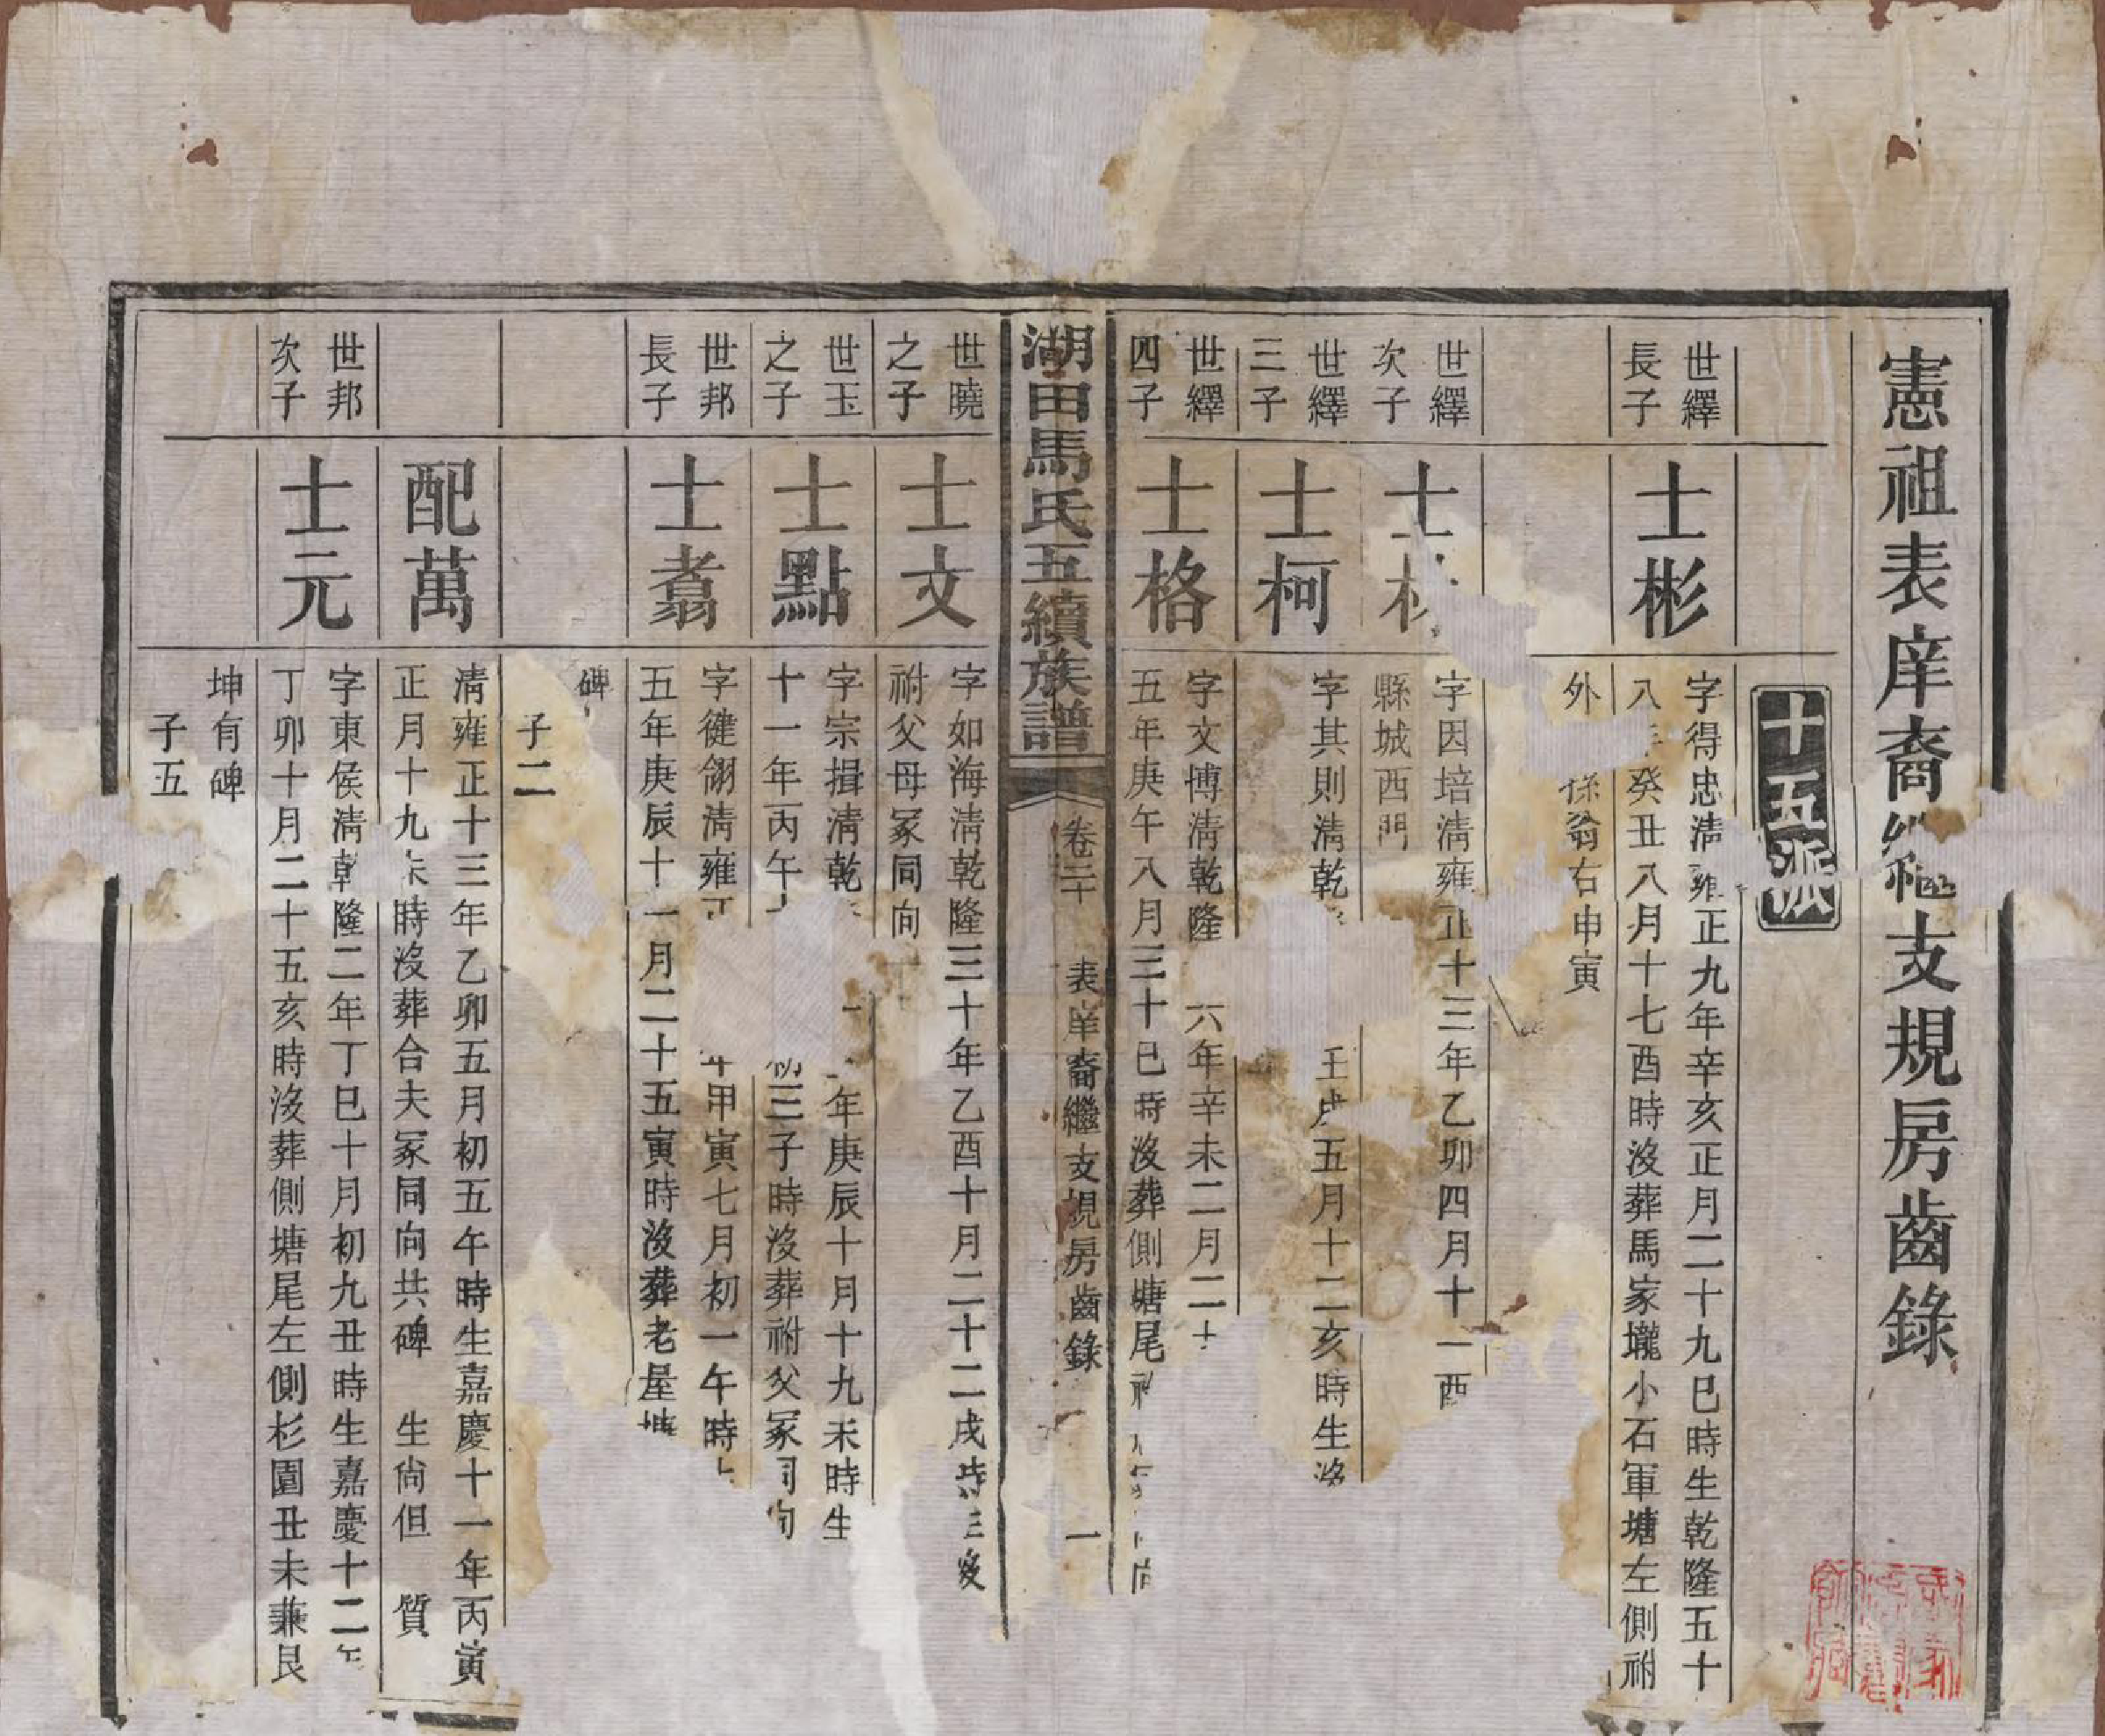 憲祖表庠裔繼支規房齒錄
十五派
世繹
長子
士彬
字得忠淸雍正九年辛亥正月二十九巳時生乾隆五十
八年癸丑八月十七酉時沒葬馬家壠小石軍塘左側祔
外 係翁右申寅
世繹
次子
士
字因培淸雍正十三年乙卯四月十一酉
縣城西門
世繹
三子
士柯
字其則淸乾
壬戌五月十二亥時生沒
世繹
四子
士格
字文博淸乾隆 六年辛未二月二十
五年庚午八月三十巳時沒葬側塘尾
湖田馬氏五續族譜
卷二十
表庠裔繼支規房齒錄
一
世曉
之子
士文
字如海淸乾隆三十年乙酉十月二十二戌時 沒
祔父母冢同向
世玉
之子
士點
字宗揖淸乾 年庚辰十月十九未時生
十一年丙午 三子時沒葬祔父冢同向
世邦
長子
士翥
字健翎淸雍正 年甲寅七月初一午時
五年庚辰十一月二十五寅時沒葬老屋
碑
子二
配萬
淸雍正十三年乙卯五月初五午時生嘉慶十一年丙寅
正月十九未時沒葬合夫冢同向共碑 生尙但 質
世邦
次子
士元
字東侯淸乾隆二年丁巳十月初九丑時生嘉慶十二年
丁卯十月二十五亥時沒葬側塘尾左側杉園丑未兼艮
坤有碑
子五